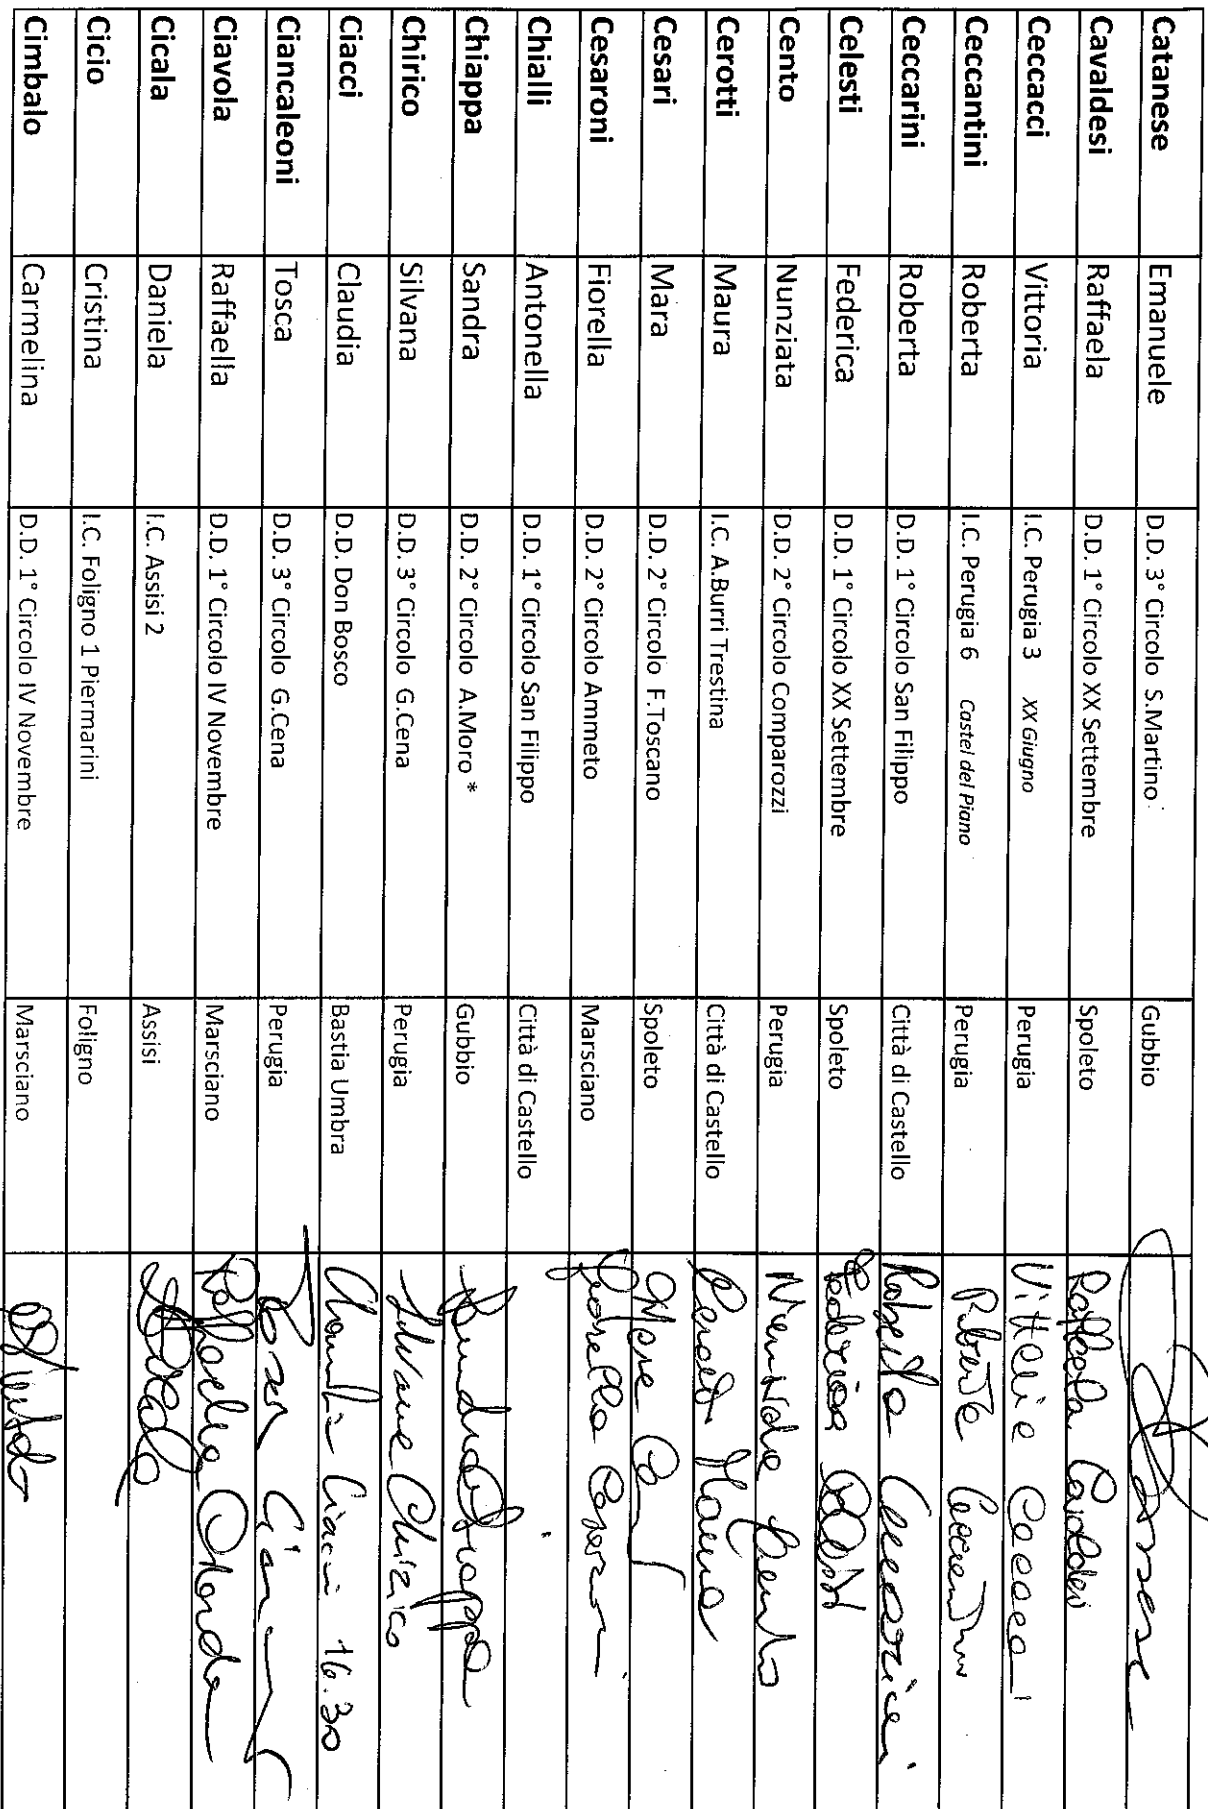 Catanese Emanuele D.D. 3° Circolo S.Martino Gubbio
Cavaldesi Raffaela D.D. 1° Circolo XX Settembre Spoleto Raffaela
Ceccacci Vittoria I.C. Perugia 3 XX Giugno Perugia Vittoria
Ceccantini Roberta I.C. Perugia 6 Castel del Piano Perugia Roberta
Ceccarini Roberta D.D. 1° Circolo San Filippo Città di Castello Roberta Ceccarini
Celesti Federica D.D. 1° Circolo XX Settembre Spoleto Federica
Cento Nunziata D.D. 2° Circolo Comparozzi Perugia Nunziata Cento
Cerotti Maura I.C. A.Burri Trestina Città di Castello Cerotti Maura
Cesari Mara D.D. 2° Circolo F.Toscano Spoleto Mara
Cesaroni Fiorella D.D. 2° Circolo Ammeto Marsciano Fiorella
Chialli Antonella D.D. 1° Circolo San Filippo Città di Castello
Chiappa Sandra D.D. 2° Circolo A.Moro * Gubbio Sandra Chiappa
Chirico Silvana D.D. 3° Circolo G.Cena Perugia Silvana Chirico
Ciacci Claudia D.D. Don Bosco Bastia Umbra Claudia Ciacci 16.30
Ciancaleoni Tosca D.D. 3° Circolo G.Cena Perugia
Ciavola Raffaella D.D. 1° Circolo IV Novembre Marsciano Raffaella
Cicala Daniela I.C. Assisi 2 Assisi
Cicio Cristina I.C. Foligno 1 Piermarini Foligno
Cimbalo Carmelina D.D. 1° Circolo IV Novembre Marsciano